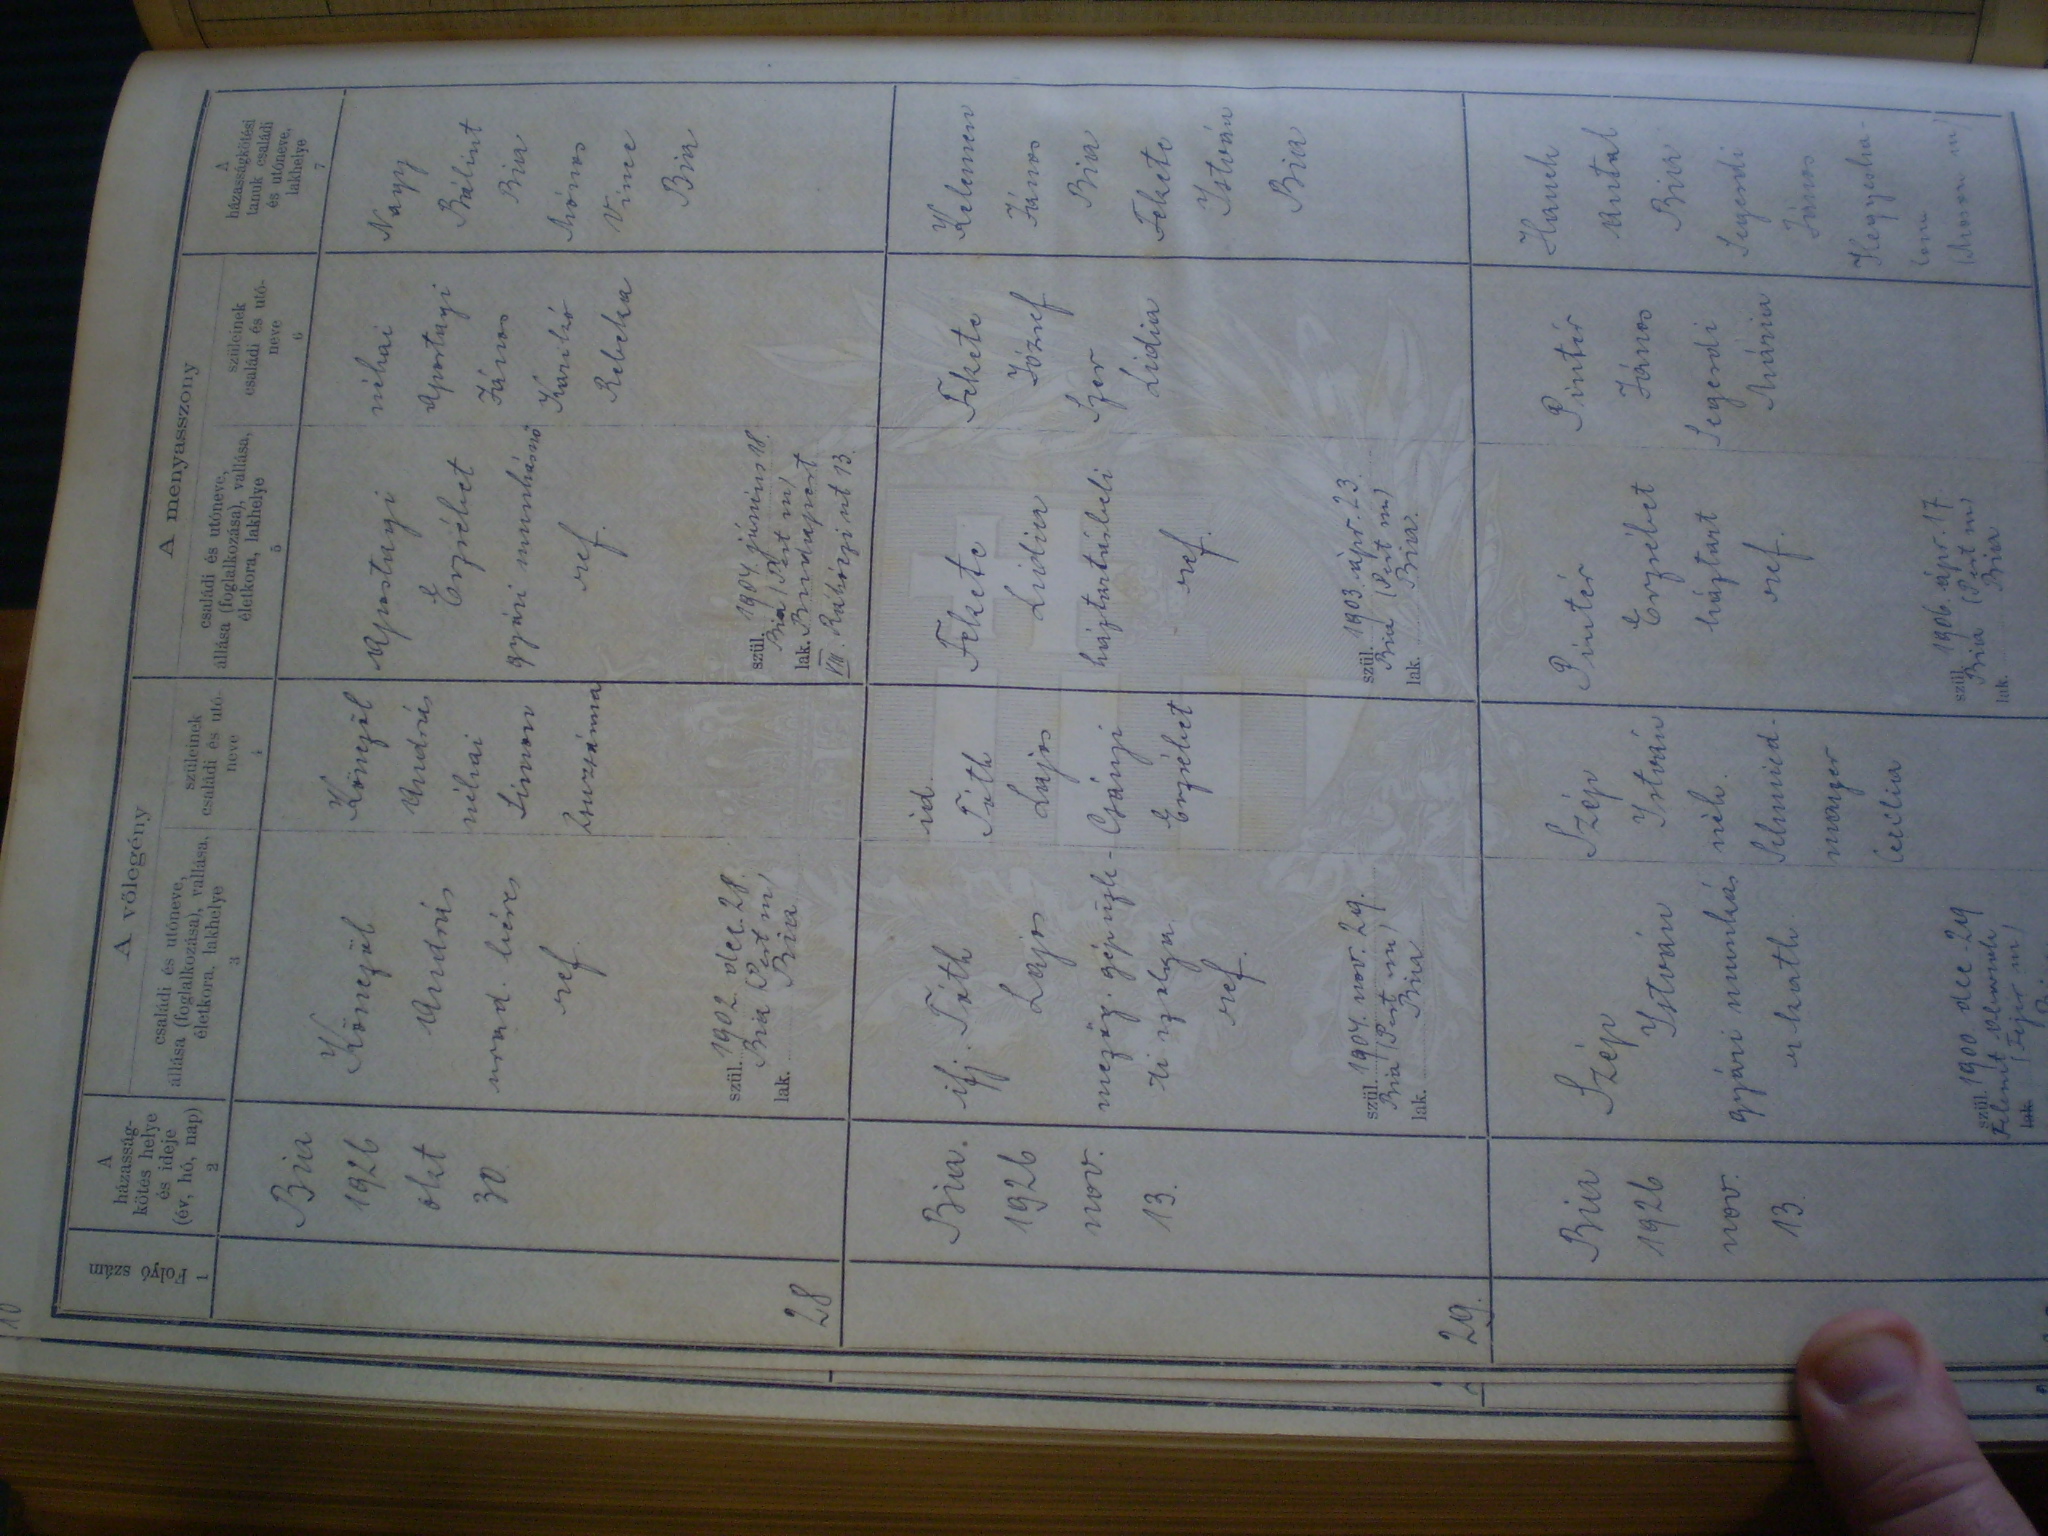 A vőlegény
A menyasszony
1
Folyó szám
A
házasság-
kötés helye
és ideje
(év, hó, nap)
2
családi és utóneve,
állása (foglalkozása), vallása,
életkora, lakhelye
3
szüleinek
családi és utó-
neve
4
családi és utóneve,
állása (foglalkozása), vallása,
életkora, lakhelye
5
szüleinek
családi és utó-
neve
6
A
házasságkötési
tanuk családi
és utóneve,
lakhelye
7
28
Bia
1926
okt
30.
András
ref.
szül. 1902. dec. 28.
Bia (Pest m)
lak. Bia
András
néhai
Simon
Zsuzsánna
Apostagi
Erzsébet
gyári munkásnő
ref.
szül. 1904. június 18.
Bia (Pest m)
lak. Budapest
VIII. Rákóczi út 13.
néhai
Apostagi
János
Rebeka
Nagy
Bálint
Bia
Vince
Bia
29.
Bia.
1926
nov.
13.
ifj. Tóth
Lajos
ref.
szül. 1904. nov. 29.
Bia (Pest m)
lak. Bia
id.
Tóth
Lajos
Csányi
Erzsébet
Fekete
Lidia
háztartásbeli
ref.
szül. 1903. ápr. 23.
Bia (Pest m)
lak. Bia.
Fekete
József
Szer
Lidia
Kelemen
János
Bia
Fekete
István
Bia
Bia
1926
nov.
13.
Szép
István
gyári munkás
r. kath.
szül. 1900 dec. 29
(Fejér m)
lak.
Szép
István
néh.
Schmied-
Cecilia
Pintér
Erzsébet
háztart
ref.
szül. 1906. ápr. 17
Bia (Pest m)
lak. Bia
Pintér
János
Segesdi
Mária
Antal
Bia
Segesdi
János
Hegyesha-
lom
(Moson m)